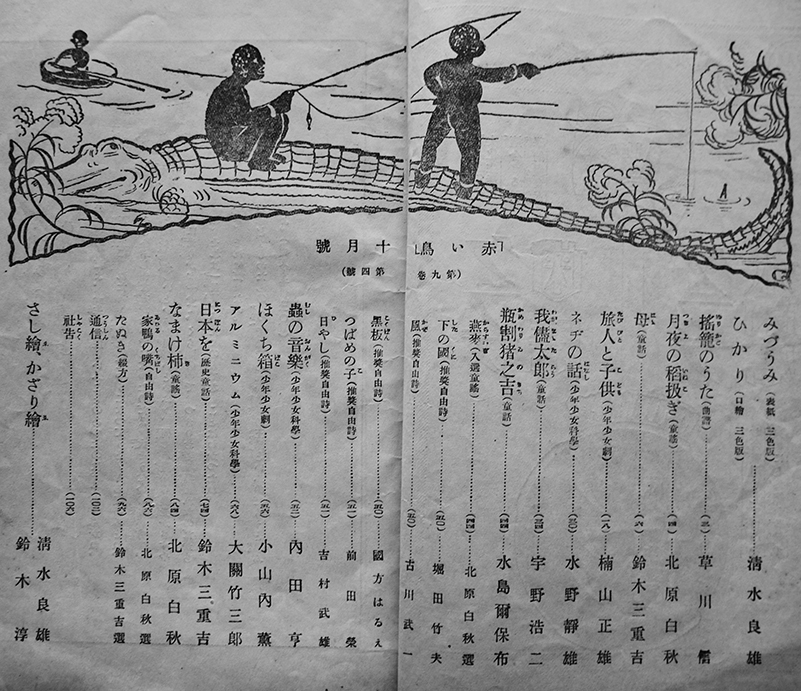 「赤い鳥」十月號
（第九卷第四號）
みづうみ（表紙　三色版）
ひかり（口繪　三色版）………清水良雄
搖籠のうた（曲譜）………（二）草川信
月夜の稻扱き（童謠）………（四）北原白秋
母（童話）………（六）鈴木三重吉
旅人と子供（少年少女劇）………（一八）楠山正雄
ネヂの話（少年少女科學）………（三〇）水野靜雄
我儘太郎（童話）………（三四）宇野浩二
瓶割猪之吉（童話）………（四四）水島爾保布
燕麥（入選童謠）………（四四）北原白秋選
下の國（推奬自由詩）………（五〇）堀田竹夫
風（推奬自由詩）………（五〇）古川武一
黑板（推奬自由詩）………（五〇）國方はるえ
つばめの子（推奬自由詩）………（五一）前田榮
日やし（推奬自由詩）………（五一）吉村武雄
蟲の音樂（少年少女科學）………（五二）內田亨
ほくち箱（少年少女劇）………（五六）小山內薰
アルミニウム（少年少女科學）………（六八）大關竹三郎
日本を（歷史童話）………（七四）鈴木三重吉
なまけ柿（童謠）………（八四）北原白秋
家鴨の嘴（自由詩）………（八八）北原白秋選
たぬき（綴方）………（九六）鈴木三重吉選
通信………（一〇三）
社告………（一〇六）
さし繪、かざり繪………清水良雄
鈴木淳